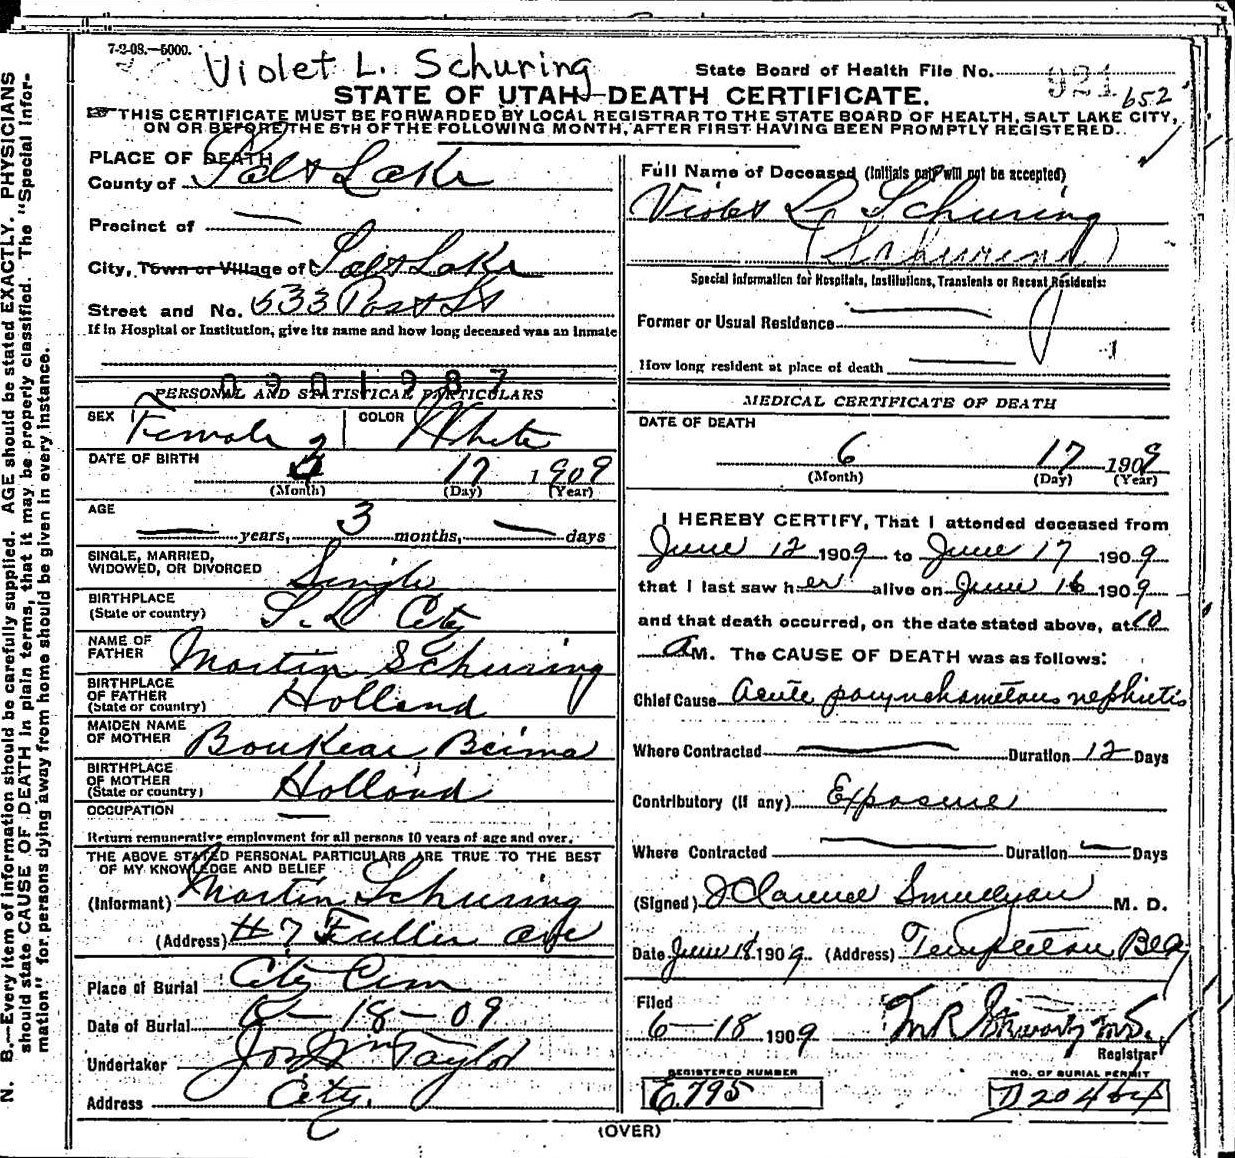 7-2-08.—5000.
Violet L. Schuring
State Board of Health File No. 921 652
STATE OF UTAH—DEATH CERTIFICATE.
THIS CERTIFICATE MUST BE FORWARDED BY LOCAL REGISTRAR TO THE STATE BOARD OF HEALTH, SALT LAKE CITY,
ON OR BEFORE THE 5TH OF THE FOLLOWING MONTH, AFTER FIRST HAVING BEEN PROMPTLY REGISTERED.
PLACE OF DEATH
County of Salt Lake
Precinct of —
City, Town or Village of Salt Lake
Street and No. 533 Post St
If in Hospital or Institution, give its name and how long deceased was an inmate
0901987
PERSONAL AND STATISTICAL PARTICULARS
SEX Female COLOR White
DATE OF BIRTH 3 17 1909
(Month) (Day) (Year)
AGE
— years, 3 months, — days
SINGLE, MARRIED,
WIDOWED, OR DIVORCED Single
BIRTHPLACE
(State or country) S. L. City
NAME OF
FATHER Martin Schuring
BIRTHPLACE
OF FATHER
(State or country) Holland
MAIDEN NAME
OF MOTHER Boukear Beima
BIRTHPLACE
OF MOTHER
(State or country) Holland
OCCUPATION —
Return remunerative employment for all persons 10 years of age and over.
THE ABOVE STATED PERSONAL PARTICULARS ARE TRUE TO THE BEST
OF MY KNOWLEDGE AND BELIEF
(Informant) Martin Schuring
(Address) #7 Fuller Ave
Place of Burial City Cem
Date of Burial 6-18-09
Undertaker Jos Wm Taylor
Address City.
Full Name of Deceased (Initials only will not be accepted)
Violet L Schuring
(Schuring)
Special Information for Hospitals, Institutions, Transients or Recent Residents:
Former or Usual Residence —
How long resident at place of death —
MEDICAL CERTIFICATE OF DEATH
DATE OF DEATH
6 17 1909
(Month) (Day) (Year)
I HEREBY CERTIFY, That I attended deceased from
June 12 1909 to June 17 1909
that I last saw her alive on June 16 1909
and that death occurred, on the date stated above, at 10
A M. The CAUSE OF DEATH was as follows:
Chief Cause Acute parynchametous nephritis
Where Contracted — Duration 12 Days
Contributory (if any) Exposure
Where Contracted — Duration — Days
(Signed) J Clarence Smullyan M. D.
Date June 18 1909. (Address) Templeton Bldg
Filed
6-18 1909 M R Stewart, M.D.
Registrar
REGISTERED NUMBER
E.795
NO. OF BURIAL PERMIT
(OVER)
N. B.—Every item of information should be carefully supplied. AGE should be stated EXACTLY. PHYSICIANS
should state CAUSE OF DEATH in plain terms, that it may be properly classified. The "Special Infor-
mation" for persons dying away from home should be given in every instance.